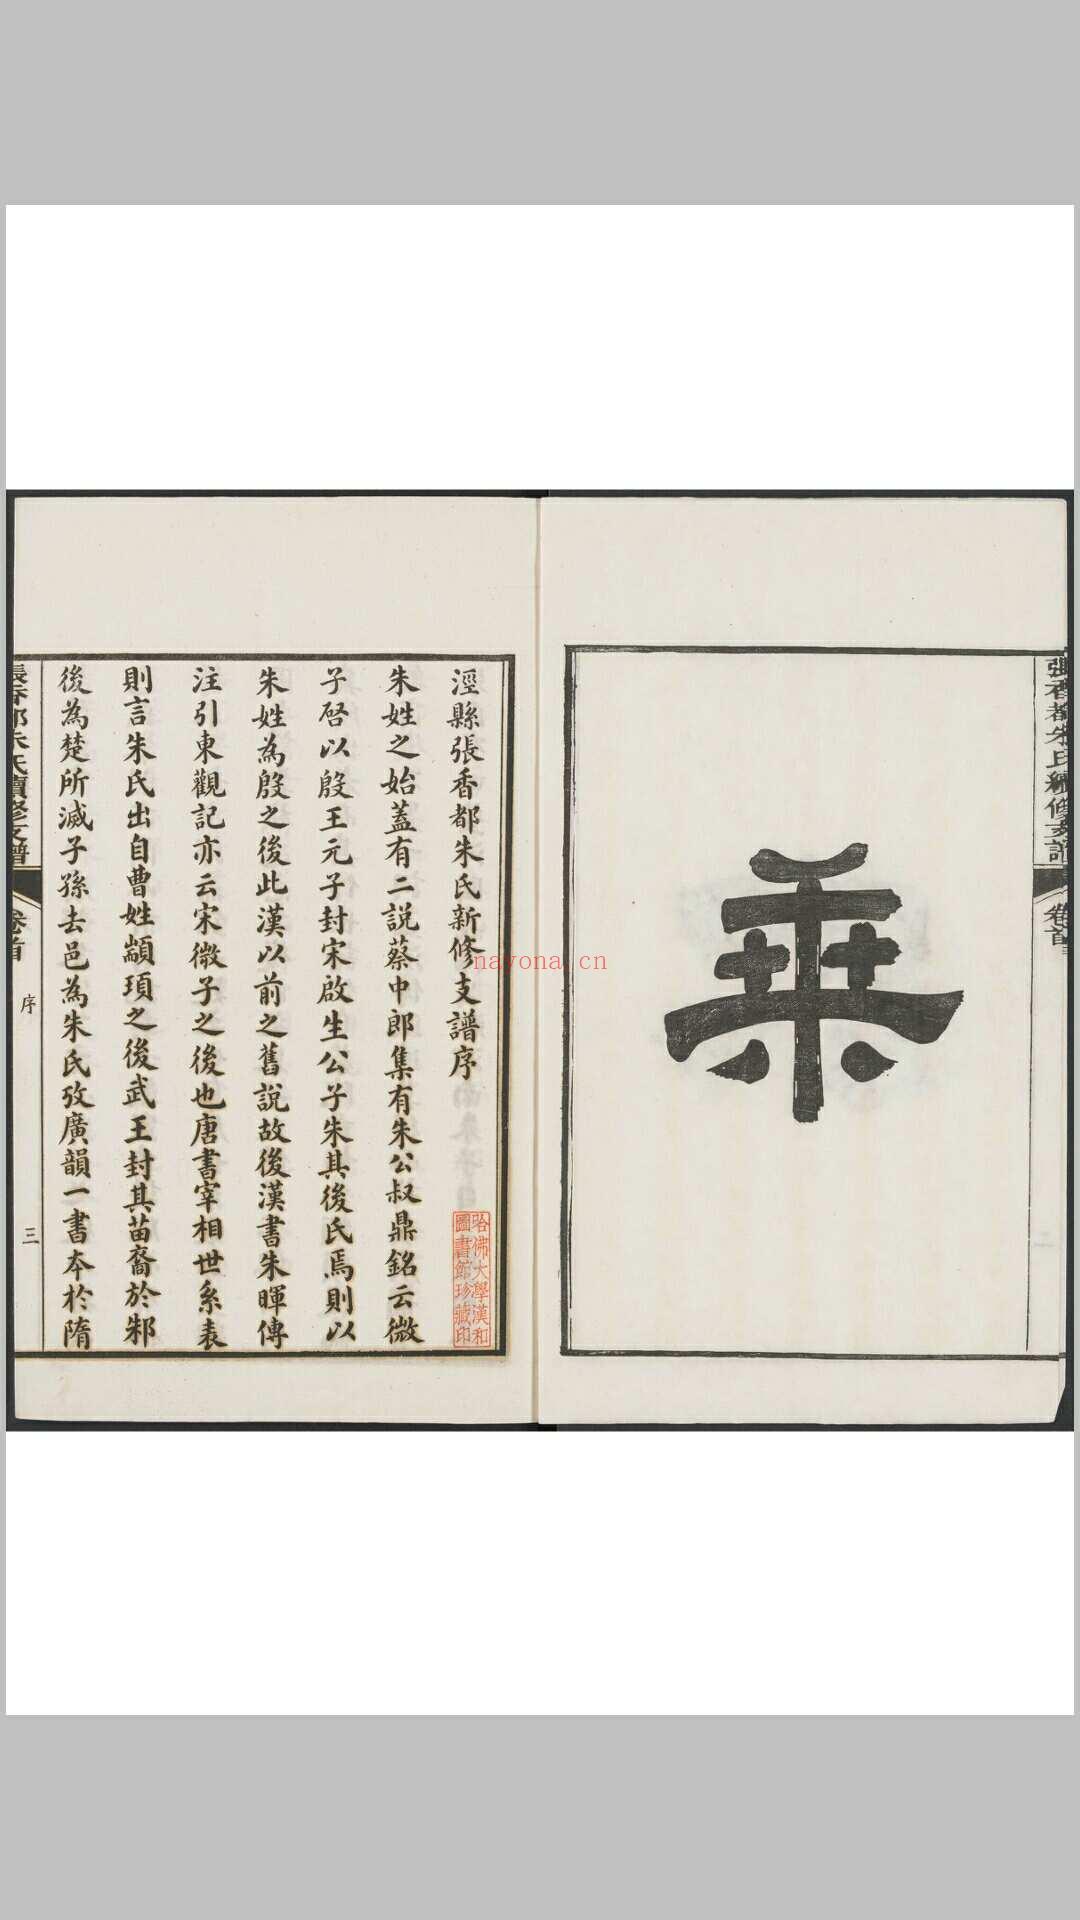 張香都朱氏續修支譜
卷首
二
乘
涇縣張香都朱氏新修支譜序
朱姓之始蓋有二説蔡中郎集有朱公叔鼎銘云微
子啓以殷王元子封宋啟生公子朱其後氏焉則以
朱姓為殷之後此漢以前之舊説故後漢書朱暉傳
注引東觀記亦云宋微子之後也唐書宰相世系表
則言朱氏出自曹姓顓頊之後武王封其苗裔於邾
後為楚所滅子孫去邑為朱氏攷廣韻一書本於隋
張香都朱氏續修支譜
卷首
序
三
哈佛大學漢和
圖書館珍藏印
nayona.cn